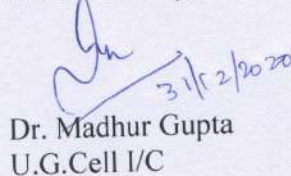 31/12/2020
Dr. Madhur Gupta
U.G.Cell I/C